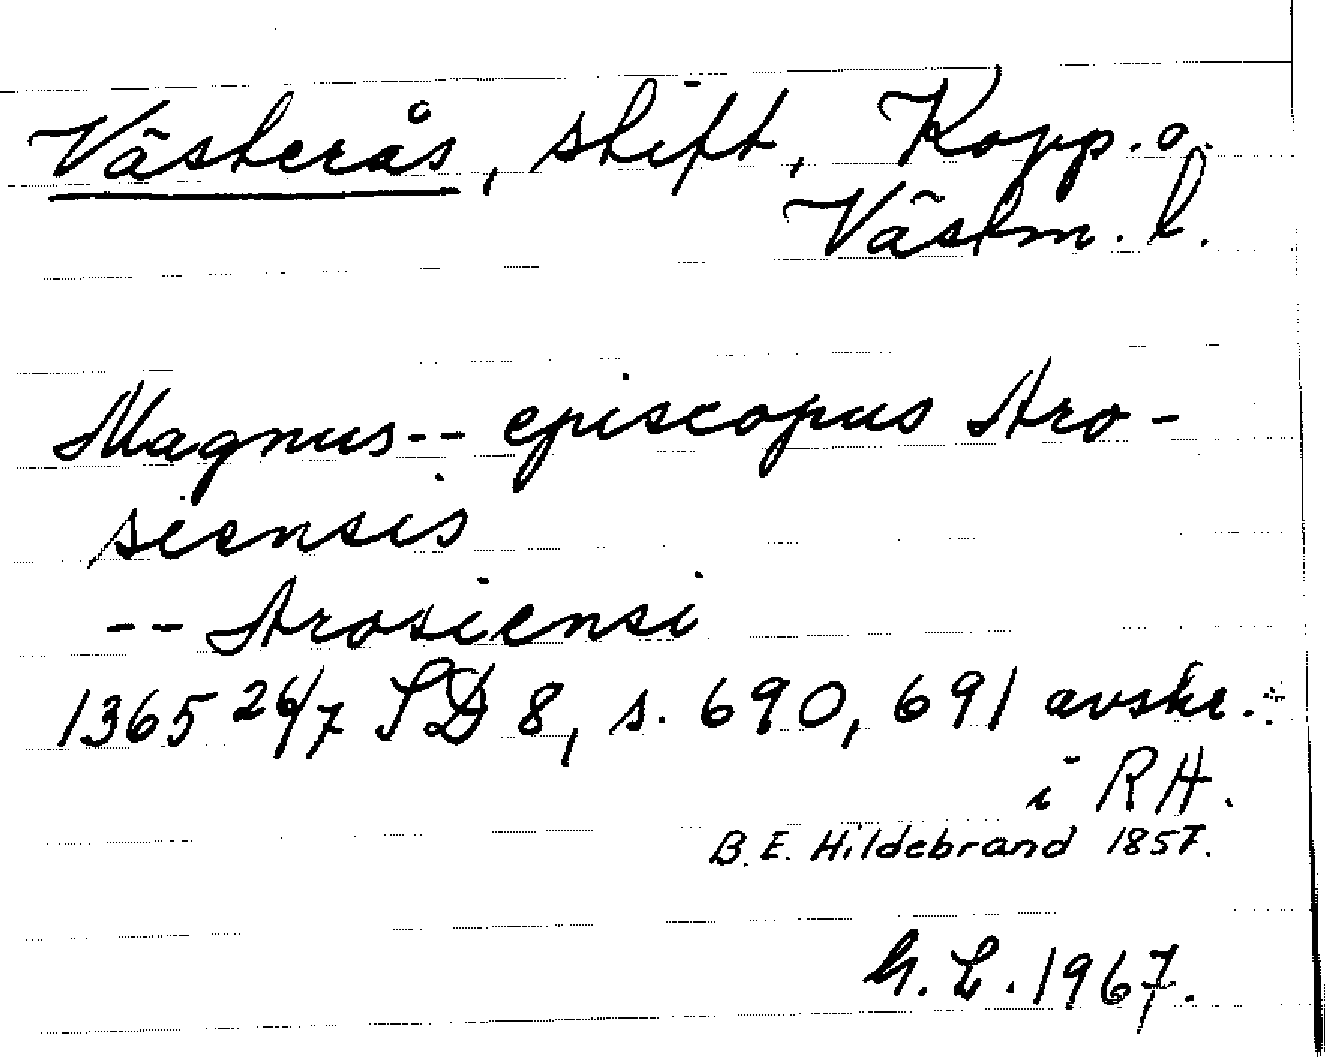 Västerås, stift, Kopp. o.
Västm. l.
Magnus-- episcopus Aro-
siensis
-- Arosiensi
1365 26/7 SD 8, s. 690, 691 avskr.
i RA.
B.E. Hildebrand 1857.
G.L. 1967.